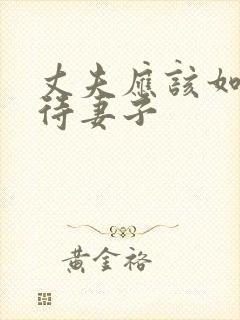 丈夫應該如
待妻子
黃金裕